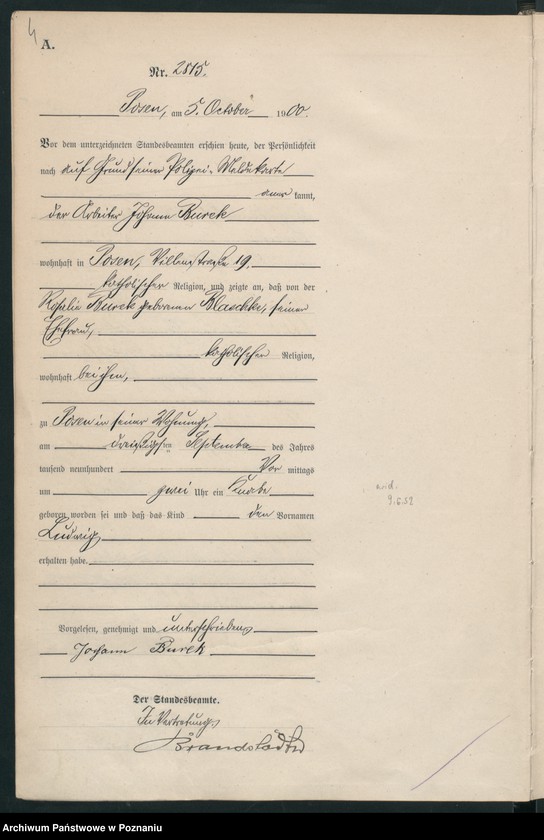 4
A.
Nr. 2815.
Posen, am 5. October 1900.
Vor dem unterzeichneten Standesbeamten erschien heute, der Persönlichkeit
nach auf Grund seiner Polizei-Meldekarte
aner kannt,
der Arbeiter Johann Burek
wohnhaft in Posen, Villenstraße 19,
katholischer Religion, und zeigte an, daß von der
Rosalie Burek geborenen Blaschke, seiner
Ehefrau,
katholischer Religion,
wohnhaft bei ihm,
zu Posen in seiner Wohnung,
am dreißigsten September des Jahres
tausend neunhundert Vor mittags
um zwei Uhr ein Knabe
geboren worden sei und daß das Kind den Vornamen
Ludwig
erhalten habe.
Vorgelesen, genehmigt und unterschrieben
Johann Burek
Der Standesbeamte.
In Vertretung
Brandstädter
9.6.52
Archiwum Państwowe w Poznaniu